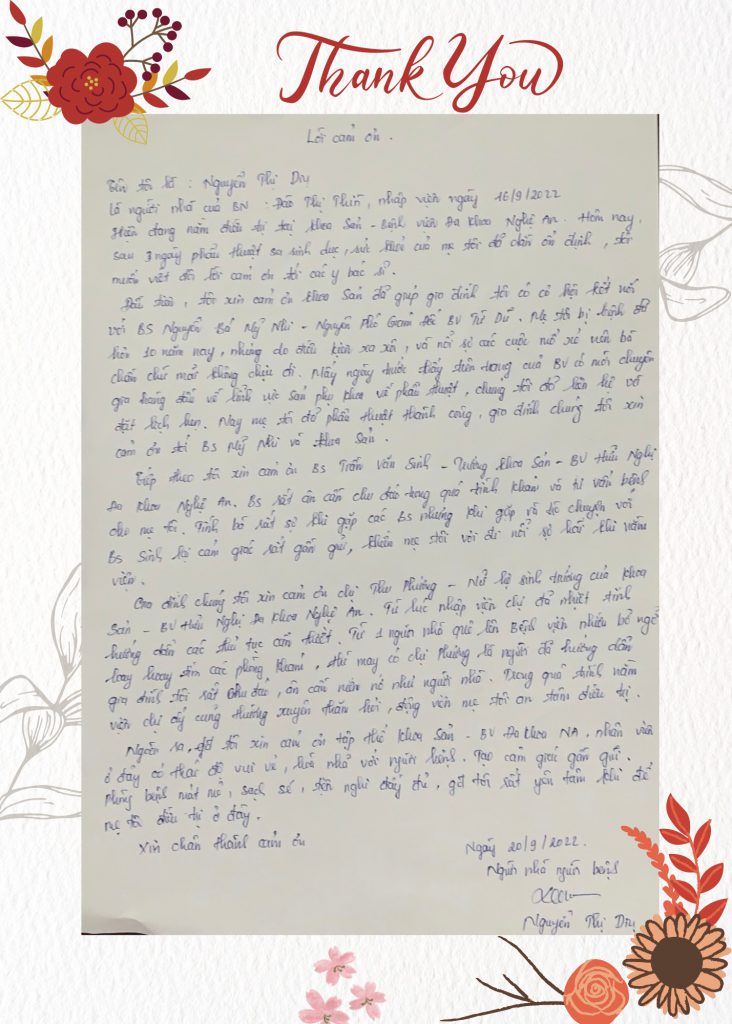 Thank You
Lời cảm ơn.
Tên tôi là : Nguyễn Thị Dịu
là người nhà của BN : Đào Thị Thìn, nhập viện ngày 16/9/2022
Hiện đang nằm điều trị tại khoa Sản - Bệnh viện Đa khoa Nghệ An. Hôm nay,
sau 3 ngày phẫu thuật sa sinh dục, sức khỏe của mẹ tôi đã dần ổn định, tôi
muốn viết đôi lời cảm ơn tới các y bác sĩ.
Đầu tiên, tôi xin cảm ơn khoa Sản đã giúp gia đình tôi có cơ hội kết nối
với BS Nguyễn Bá Mỹ Nhi - Nguyên Phó Giám đốc BV Từ Dũ. Mẹ tôi bị bệnh đã
hơn 10 năm nay, nhưng do điều kiện xa xôi, và nỗi sợ các cuộc mổ xẻ nên bà
chần chừ mãi không chịu đi. Mấy ngày trước thấy trên trang của BV có mời chuyên
gia hàng đầu về lĩnh vực sản phụ khoa về phẫu thuật, chúng tôi đã liên hệ và
đặt lịch hẹn. Nay mẹ tôi đã phẫu thuật thành công, gia đình chúng tôi xin
cảm ơn tới Bs Mỹ Nhi và khoa Sản.
Tiếp theo tôi xin cảm ơn Bs Trần Văn Sinh - Trưởng khoa Sản - BV Hữu Nghị
Đa khoa Nghệ An. Bs rất ân cần chu đáo trong quá trình khám và tư vấn bệnh
cho mẹ tôi. Tính bà rất sợ khi gặp các Bs nhưng khi gặp và trò chuyện với
Bs Sinh lại cảm giác rất gần gũi, khiến mẹ tôi vơi đi nỗi sợ hãi khi nằm
viện.
Gia đình chúng tôi xin cảm ơn chị Thu Phương - Nữ hộ sinh trưởng của khoa
Sản - BV Hữu Nghị Đa khoa Nghệ An. Từ lúc nhập viện chị đã nhiệt tình
hướng dẫn các thủ tục cần thiết. Từ 1 người nhà quê lên Bệnh viện nhiều bỡ ngỡ
loay hoay tìm các phòng khám, thì may có chị Phương là người đã hướng dẫn
gia đình tôi rất chu đáo, ân cần niềm nở như người nhà. Trong quá trình nằm
viện chị ấy cũng thường xuyên thăm hỏi, động viên mẹ tôi an tâm điều trị.
Ngoài ra, gđ tôi xin cảm ơn tập thể khoa Sản - BV Đa khoa NA, nhân viên
ở đây có thái độ vui vẻ, hòa nhã với người bệnh. Tạo cảm giác gần gũi.
Phòng bệnh mát mẻ, sạch sẽ, tiện nghi đầy đủ, gđ tôi rất yên tâm khi để
mẹ tôi điều trị ở đây.
Xin chân thành cảm ơn
Ngày 20/9/2022.
Người nhà người bệnh
Nguyễn Thị Dịu